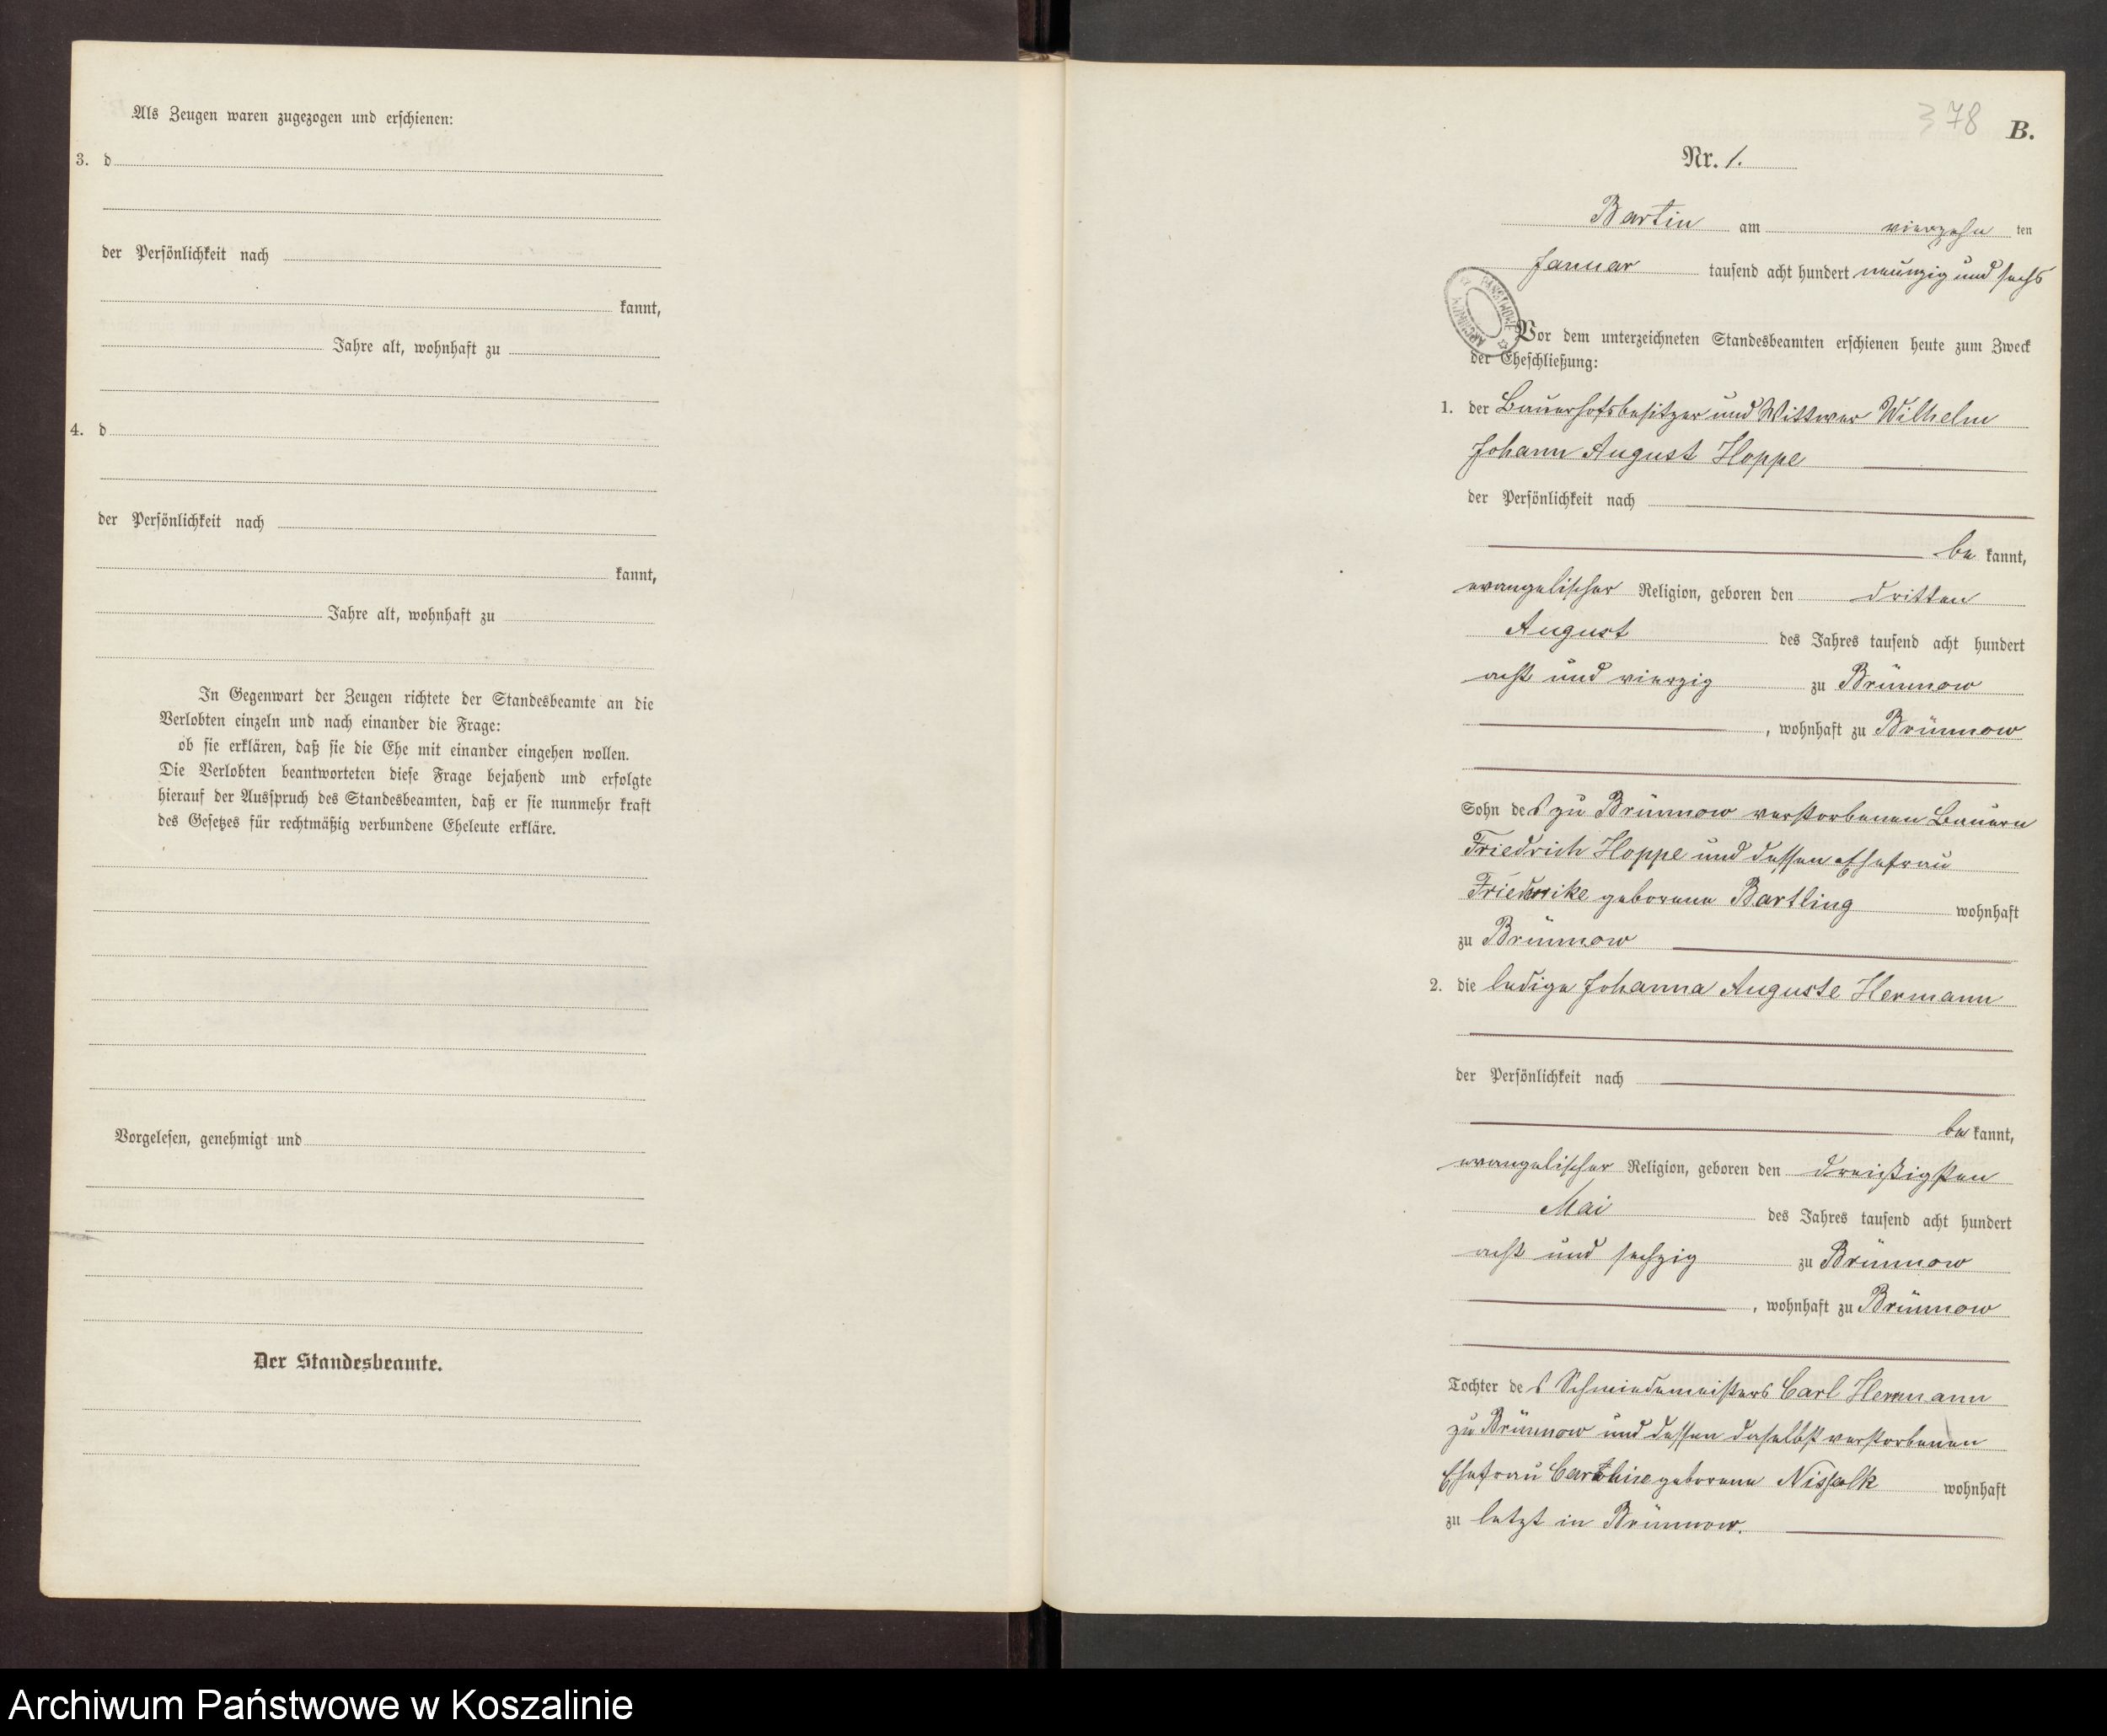 Als Zeugen waren zugezogen und erschienen:
3. d
der Persönlichkeit nach
kannt,
Jahre alt, wohnhaft zu
4. d
der Persönlichkeit nach
kannt,
Jahre alt, wohnhaft zu
In Gegenwart der Zeugen richtete der Standesbeamte an die
Verlobten einzeln und nach einander die Frage:
ob sie erklären, daß sie die Ehe mit einander eingehen wollen.
Die Verlobten beantworteten diese Frage bejahend und erfolgte
hierauf der Ausspruch des Standesbeamten, daß er sie nunmehr kraft
des Gesetzes für rechtmäßig verbundene Eheleute erkläre.
Vorgelesen, genehmigt und
Der Standesbeamte.
378
B.
Nr. 1.
Bartin am vierzehn ten
Januar tausend acht hundert neunzig und sechs
ARCHIWUM PAŃSTWOWE
Vor dem unterzeichneten Standesbeamten erschienen heute zum Zweck
der Eheschließung:
1. der Bauerhofsbesitzer und Wittwer Wilhelm
Johann August Hoppe
der Persönlichkeit nach
be kannt,
evangelischer Religion, geboren den dritten
August des Jahres tausend acht hundert
acht und vierzig zu Brünnow
, wohnhaft zu Brünnow
Sohn des zu Brünnow verstorbenen Bauern
Friedrich Hoppe und dessen Ehefrau
Friederike geborene Bartling wohnhaft
zu Brünnow
2. die ledige Johanna Auguste Hermann
der Persönlichkeit nach
be kannt,
evangelischer Religion, geboren den dreißigsten
Mai des Jahres tausend acht hundert
acht und sechzig zu Brünnow
, wohnhaft zu Brünnow
Tochter des Schmiedemeisters Carl Hermann
zu Brünnow und dessen daselbst verstorbenen
Ehefrau geborene wohnhaft
zu letzt in Brünnow.
Archiwum Państwowe w Koszalinie